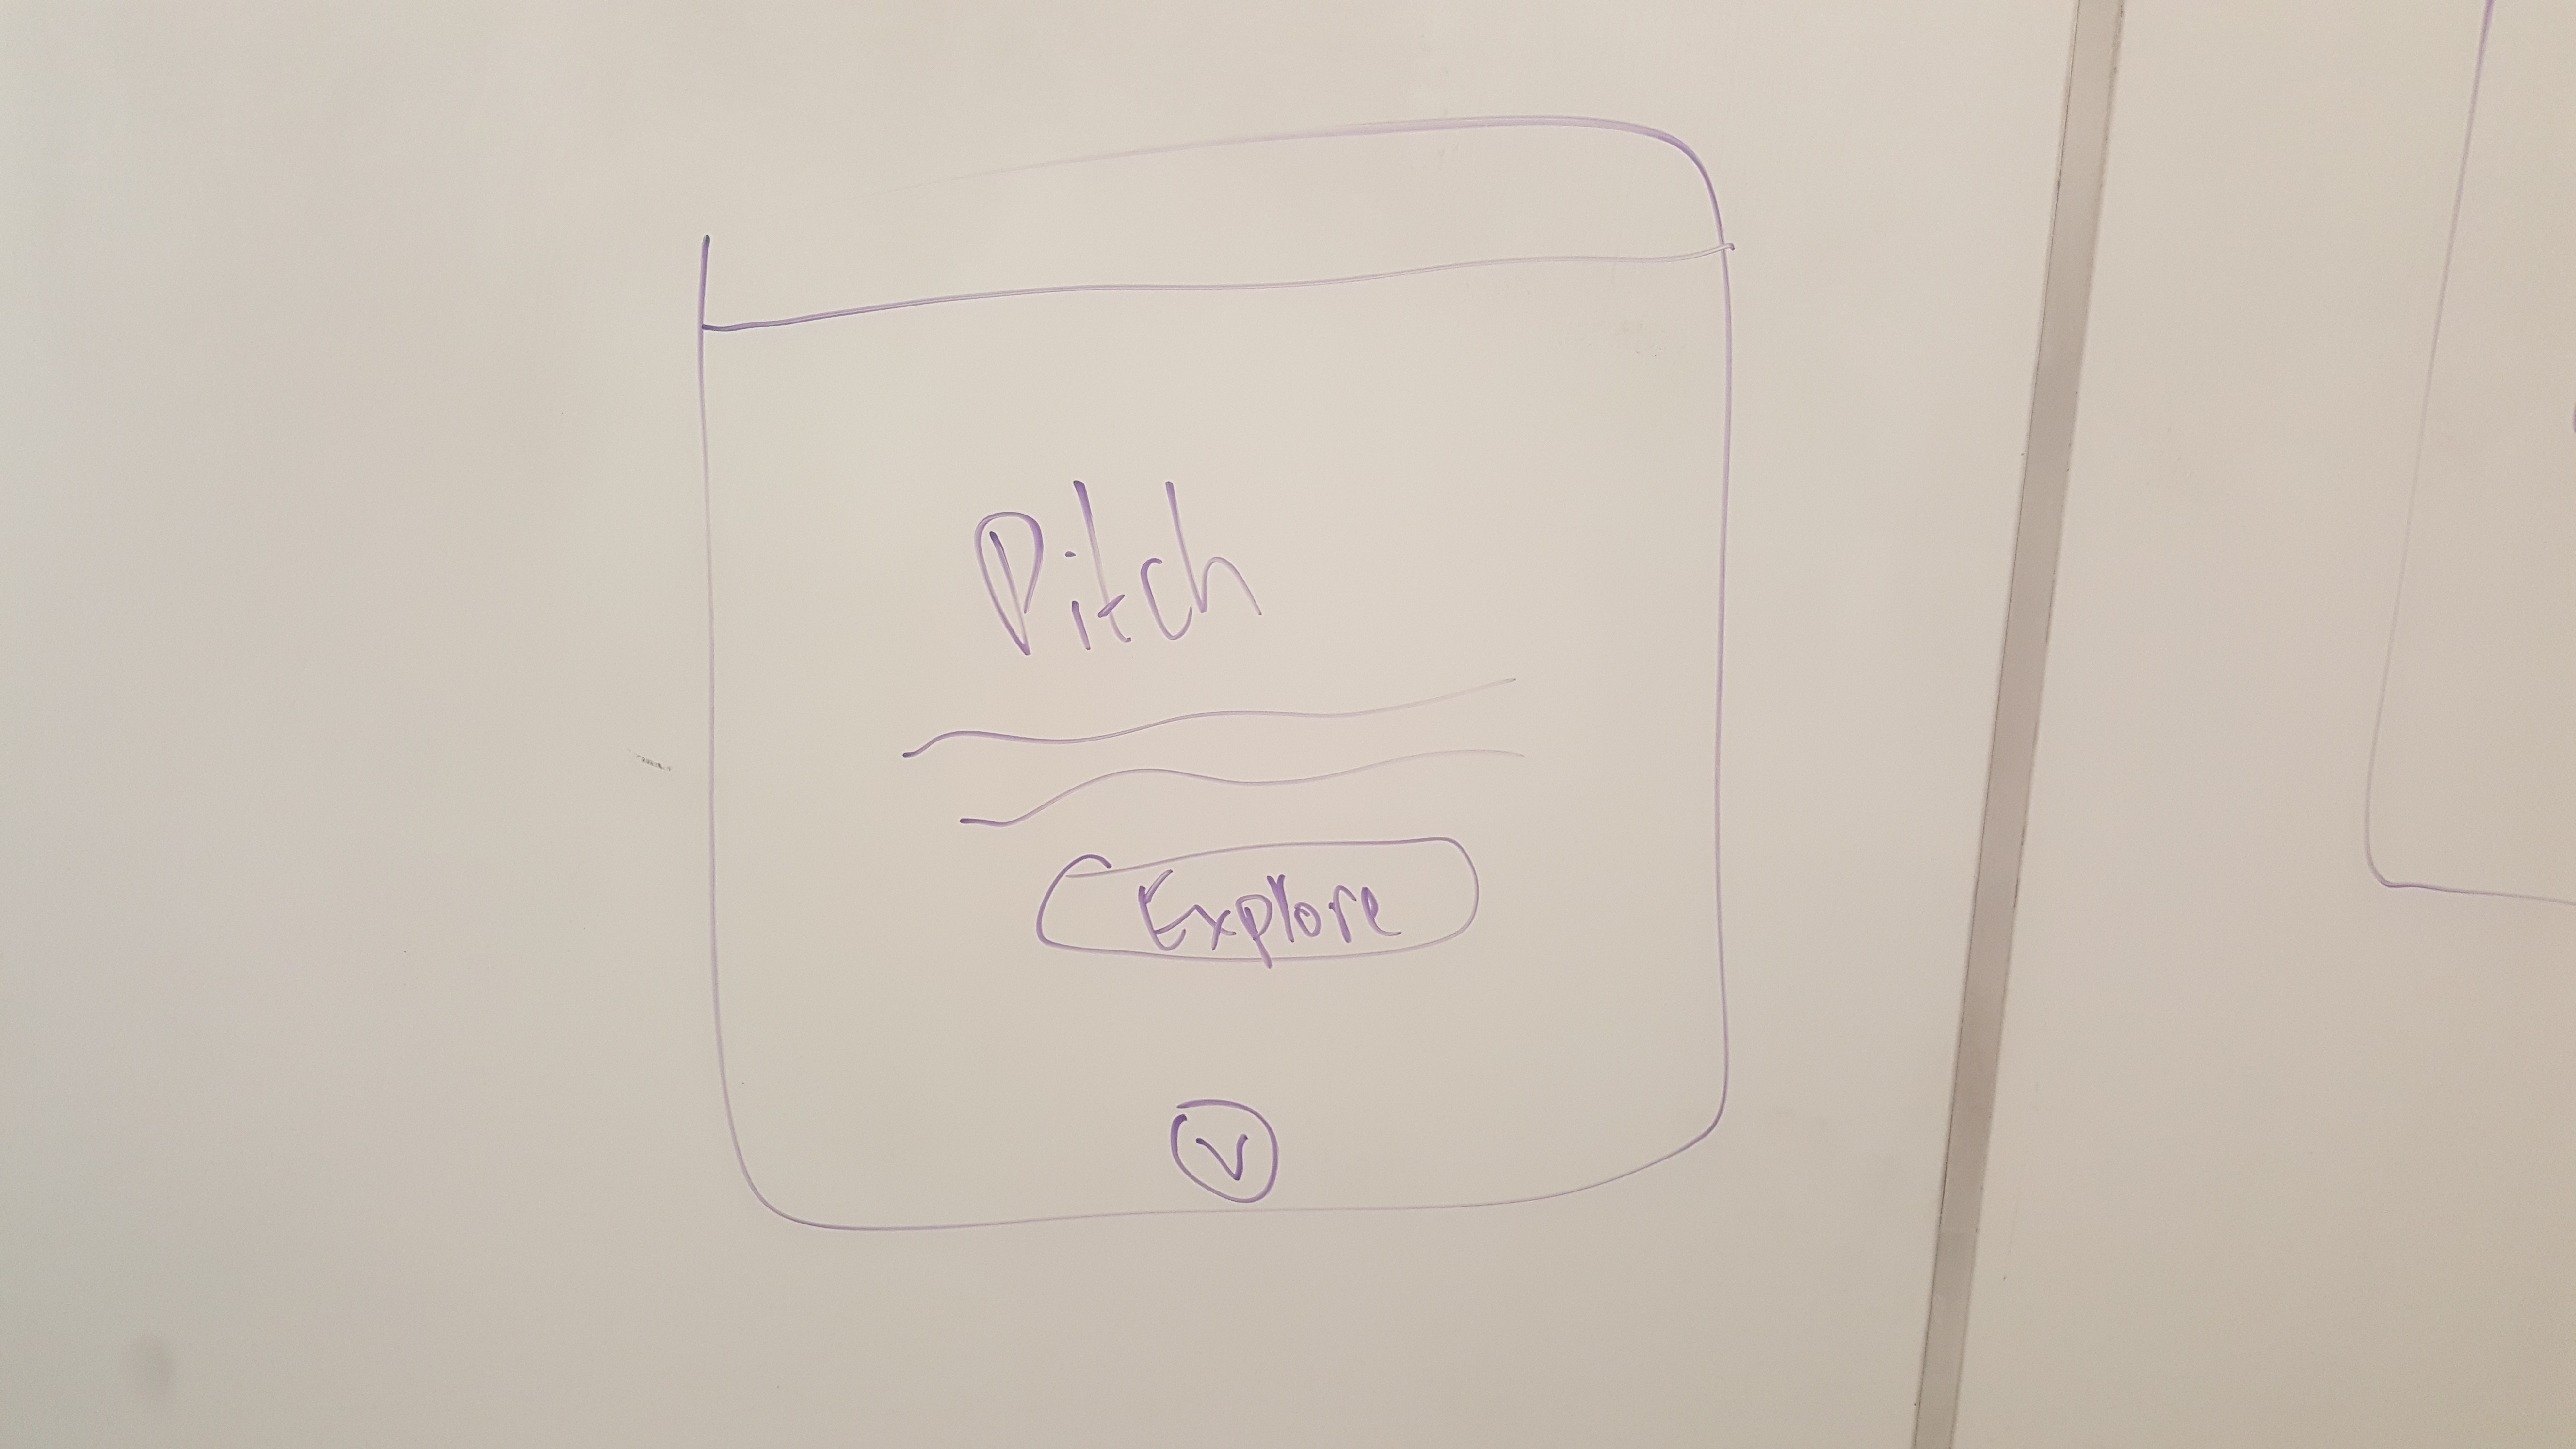 Pitch
Explore